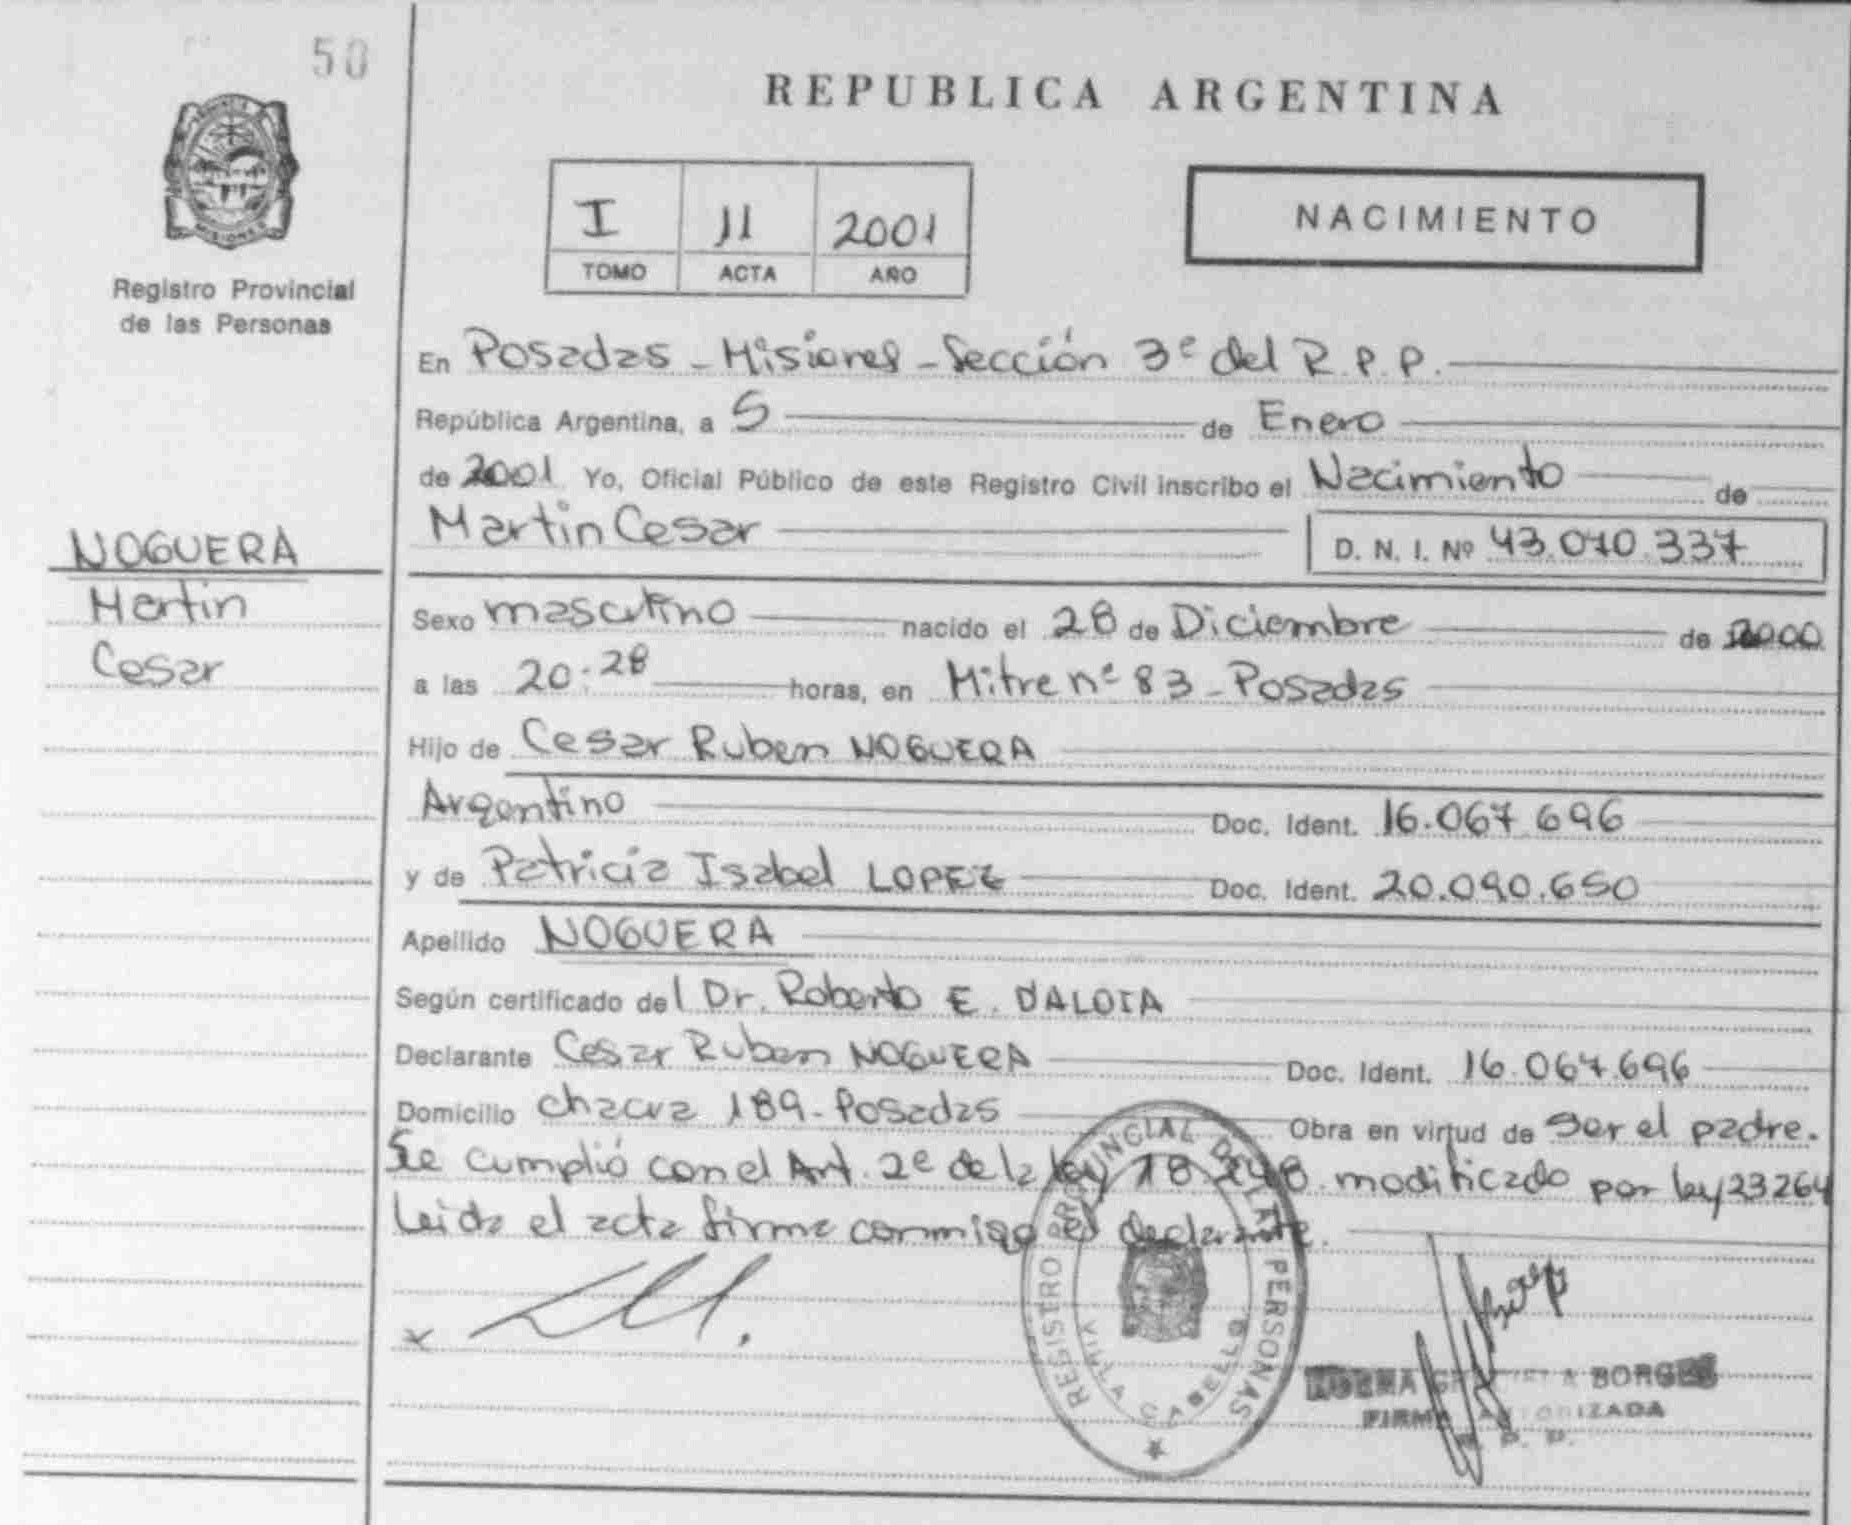 50
REPUBLICA ARGENTINA
I 11 2001
TOMO ACTA AÑO
NACIMIENTO
Registro Provincial
de las Personas
NOGUERA
Martin
Cesar
En Posadas - Misiones - Sección 3ª del R.P.P.
República Argentina, a 5 de Enero
de 2001 Yo, Oficial Público de este Registro Civil inscribo el Nacimiento de
Martin Cesar D. N. I. Nº 43.070.337
Sexo masculino nacido el 28 de Diciembre de 2000
a las 20:28 horas, en Mitre nº 83 - Posadas
Hijo de Cesar Ruben NOGUERA
Argentino Doc. Ident. 16.067.696
y de Patricia Isabel LOPEZ Doc. Ident. 20.090.650
Apellido NOGUERA
Según certificado del Dr. Roberto E. D'ALOIA
Declarante Cesar Ruben NOGUERA Doc. Ident. 16.067.696
Domicilio chacra 189 - Posadas Obra en virtud de ser el padre.
Se cumplió con el Art. 2º de la ley 18.248 modificado por ley 23264
Leida el acta firma conmigo el declarante.
REGISTRO PROVINCIAL DE LAS PERSONAS
VILLA CABELLO
BORGES
FIRMA AUTORIZADA
R. P. P.